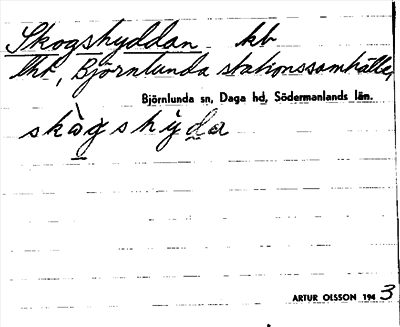 Skogshyddan kb
lht, Björnlunda stationssamhälle,
Björnlunda sn, Daga hd, Södermanlands län.
skògshỳda
ARTUR OLSSON 1943